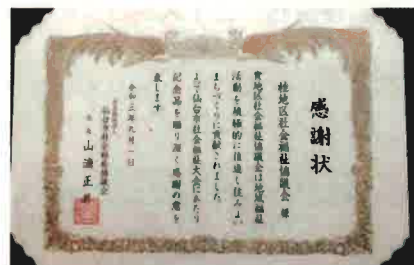 感謝状
桂地区社会福祉協議会 様
貴地区社会福祉協議会は地域福祉
活動を積極的に推進し住みよい
まちづくりに貢献されました
よって仙台市社会福祉大会にあたり
記念品を贈り深く感謝の意を
表します
令和三年九月一日
仙台市社会福祉協議会
会長 山浦正